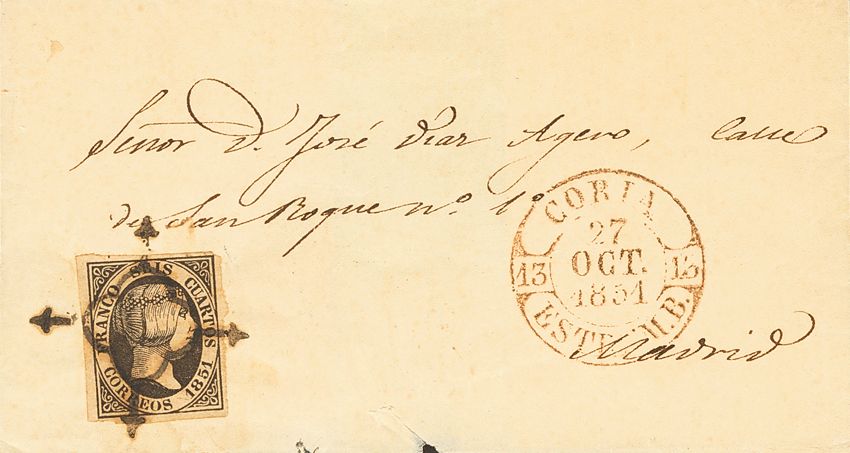 Señor D. José Díaz Agero, Calle
de San Roque nº. 1º
CORIA
27
OCT.
1851
13 13
ESTREM.B.
Madrid
FRANCO SEIS CUARTOS
CORREOS 1851